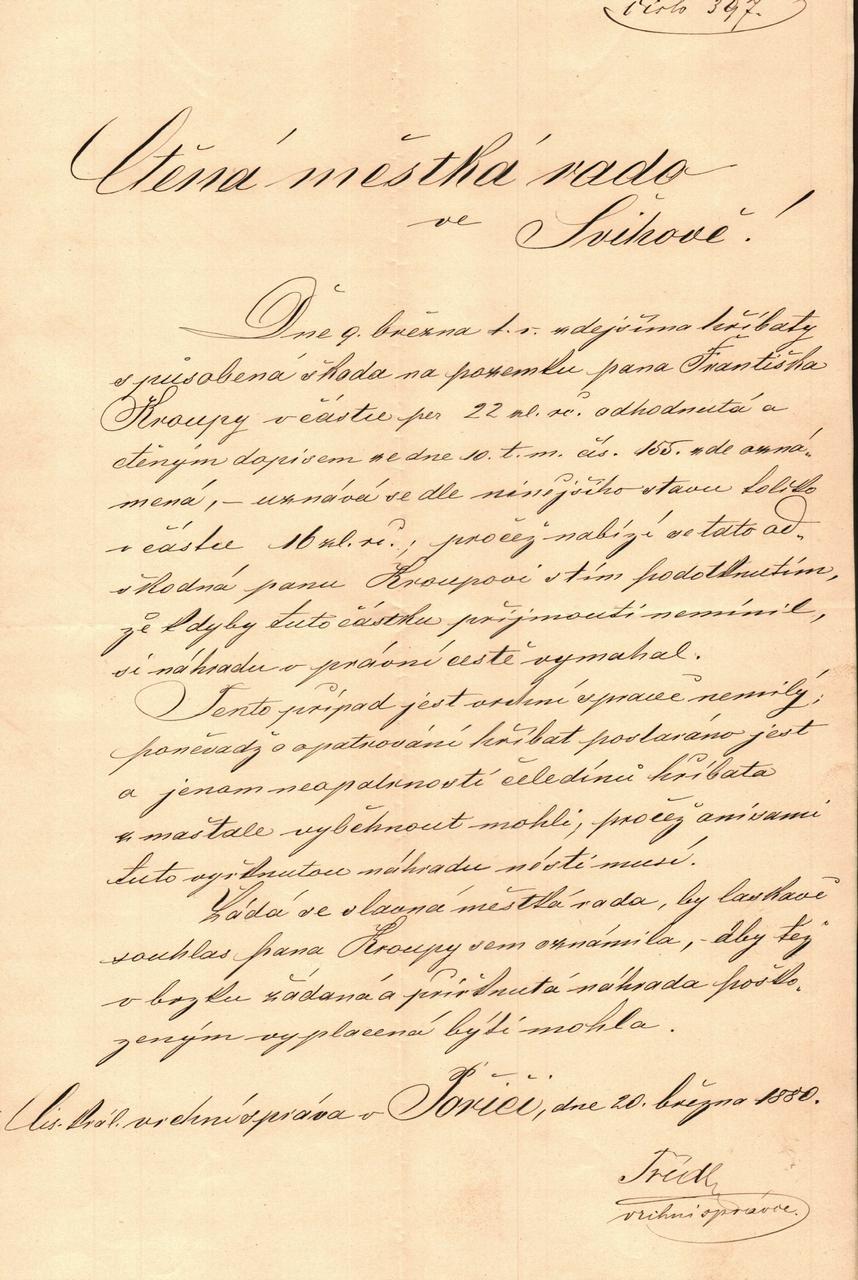 číslo 397.
Ctěná městká rado
ve Švihově!
Dne 9. března t. r. zdejšíma hříbaty
spůsobená škoda na pozemku pana Františka
Kroupy v částce per 22 zl. rč. odhodnutá a
ctěným dopisem ze dne 10. t. m. čís. 155. zde ozná-
mená, – uznává se dle ninejšího stavu toliko
v částce 16 zl. rč.; pročež nabízí se tato od-
škodná panu Kroupovi s tím podotknutím,
že kdyby tuto částku přijmouti nemínil,
si náhradu v právní cestě vymahal.
Tento případ jest vrchní správě nemilý;
poněvadž o opatrování hříbat postaráno jest
a jenom neopatrností čeledínů hříbata
z maštale vyběhnout mohli, pročež oni sami
tuto vyřknutou náhradu nésti musí.
Žádá se slavná městká rada, by laskavě
souhlas pana Kroupy sem oznámila, – aby též
v brzku žádaná a přiřknutá náhrada poško-
zeným vyplacená býti mohla.
Cis. král. vrchní správa v Poříčí, dne 20. března 1880.
vrchní správce.